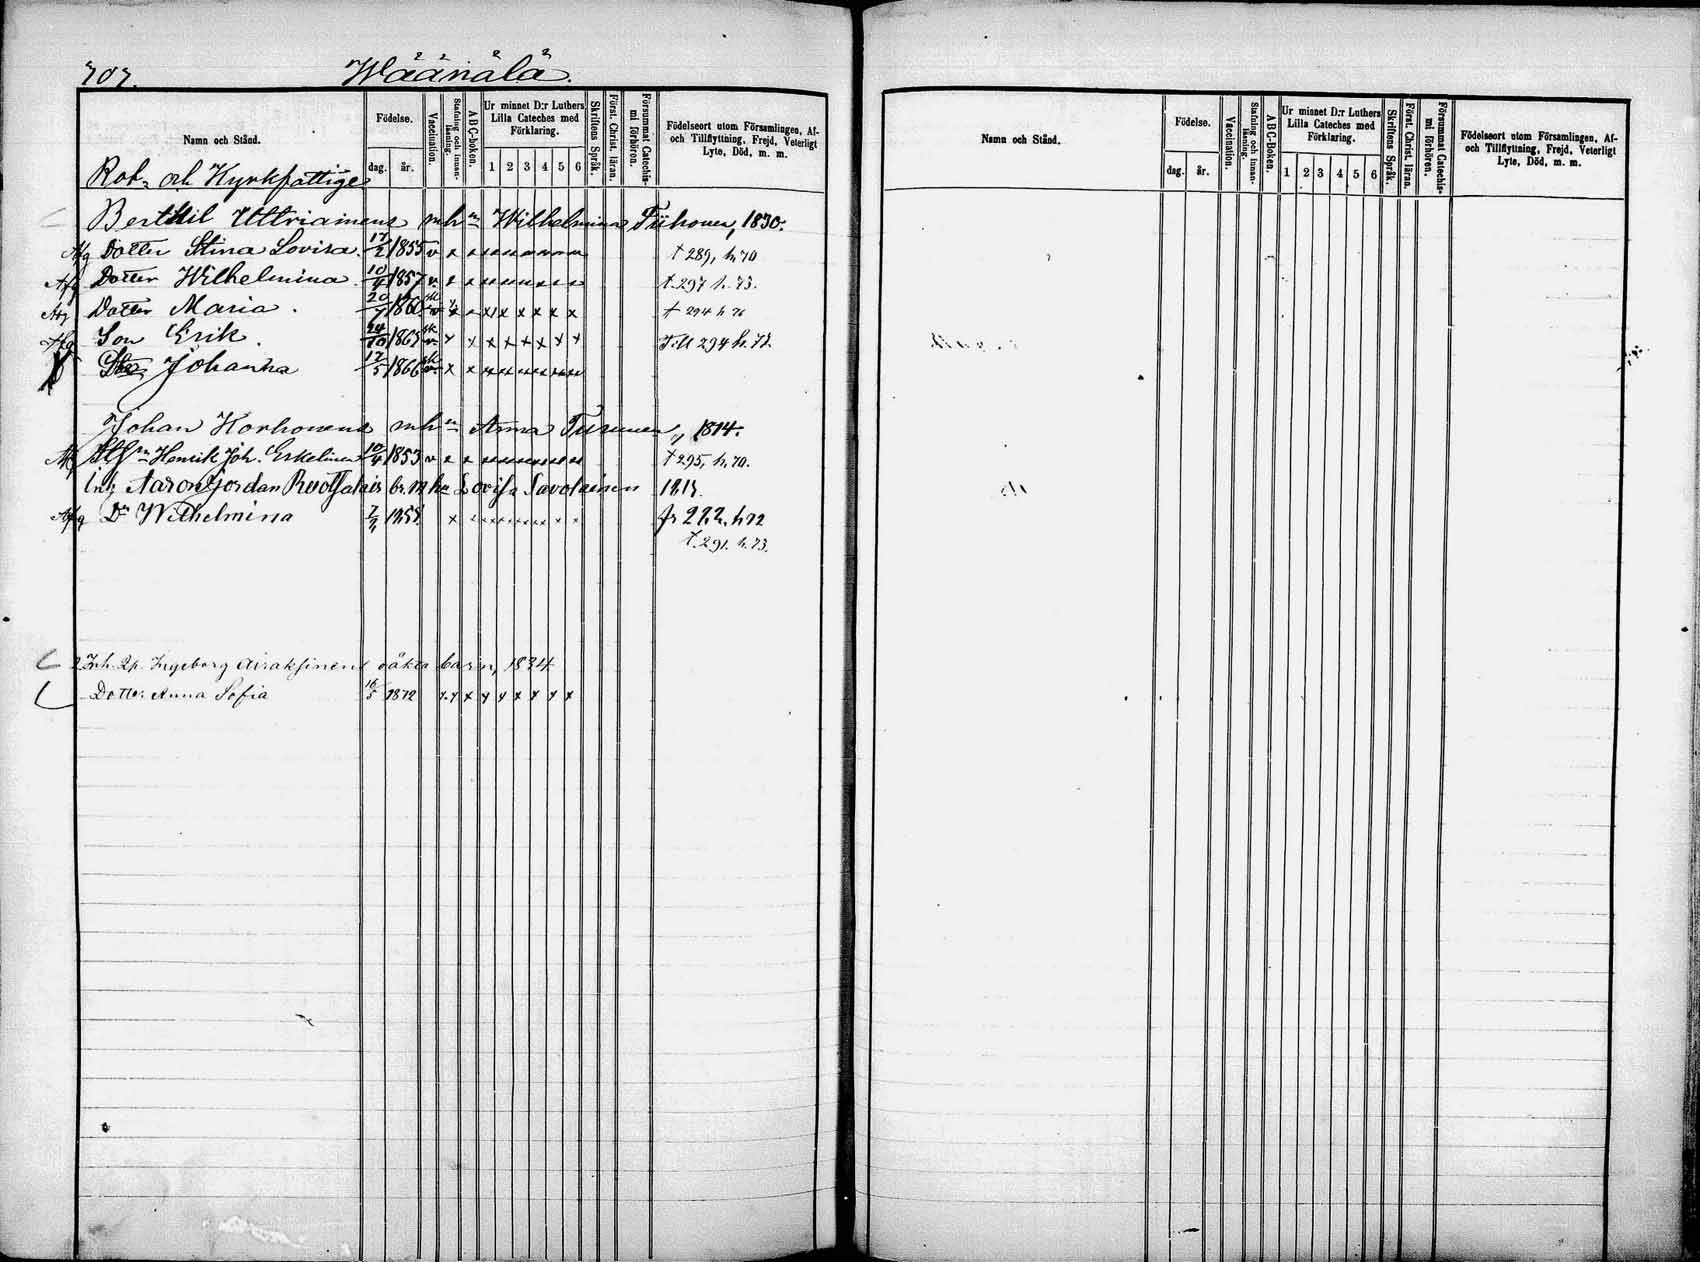 707. Wäänälä.
Namn och Stånd.
Födelse.
dag. år.
Vaccination.
Stafning och Innanläsning.
ABC-boken.
Ur minnet D:r Luthers Lilla Cateches med Förklaring.
1 2 3 4 5 6
Skriftens Språk.
Först. Christ. läran.
Försummat Catechismi förhören.
Födelseort utom Församlingen, Af- och Tillflyttning, Frejd, Veterligt Lyte, Död, m. m.
Rot- och Kyrkfattige
Berthil Uttriainens mhn Wilhelmina Tiihonen, 1830.
Afg Dotter Stina Lovisa. 17/2 1855 v x x x x x x x x t 289, h. 70
Afg Dotter Wilhelmina 10/4 1857 v x x x x x x x x t. 297 h. 73.
Afg Dotter Maria. 20/7 1860 v x x x x x x x x t 294 h 76
Afg Son Erik. 24/10 1867 v x x x x x x x x 294 h. 77.
Johanna 17/5 1866 v x x x x x x x x
Johan Korhonens mhn Anna Turunen, 1814.
Henrik Joh. Eskelinen 10/4 1853 v x x x x x x x x t 295, h. 70.
Inh Aaron Jordan Ruotsalais br. m hu Lovisa Savolainen 1815.
Afg Dr Wilhelmina 1858 x x x x x x x x fr 272. h. 72
t. 291. h. 73.
Inh. Qp. Ingeborg Airaksinens oäkta barn, 1834
Dotter Anna Sofia 16/5 1872 x x x x x x x x
Namn och Stånd.
Födelse.
dag. år.
Vaccination.
Stafning och Innanläsning.
ABC-Boken.
Ur minnet D:r Luthers Lilla Cateches med Förklaring.
1 2 3 4 5 6
Skriftens Språk.
Först. Christ. läran.
Försummat Catechismi förhören.
Födelseort utom Församlingen, Af- och Tillflyttning, Frejd, Veterligt Lyte, Död, m. m.